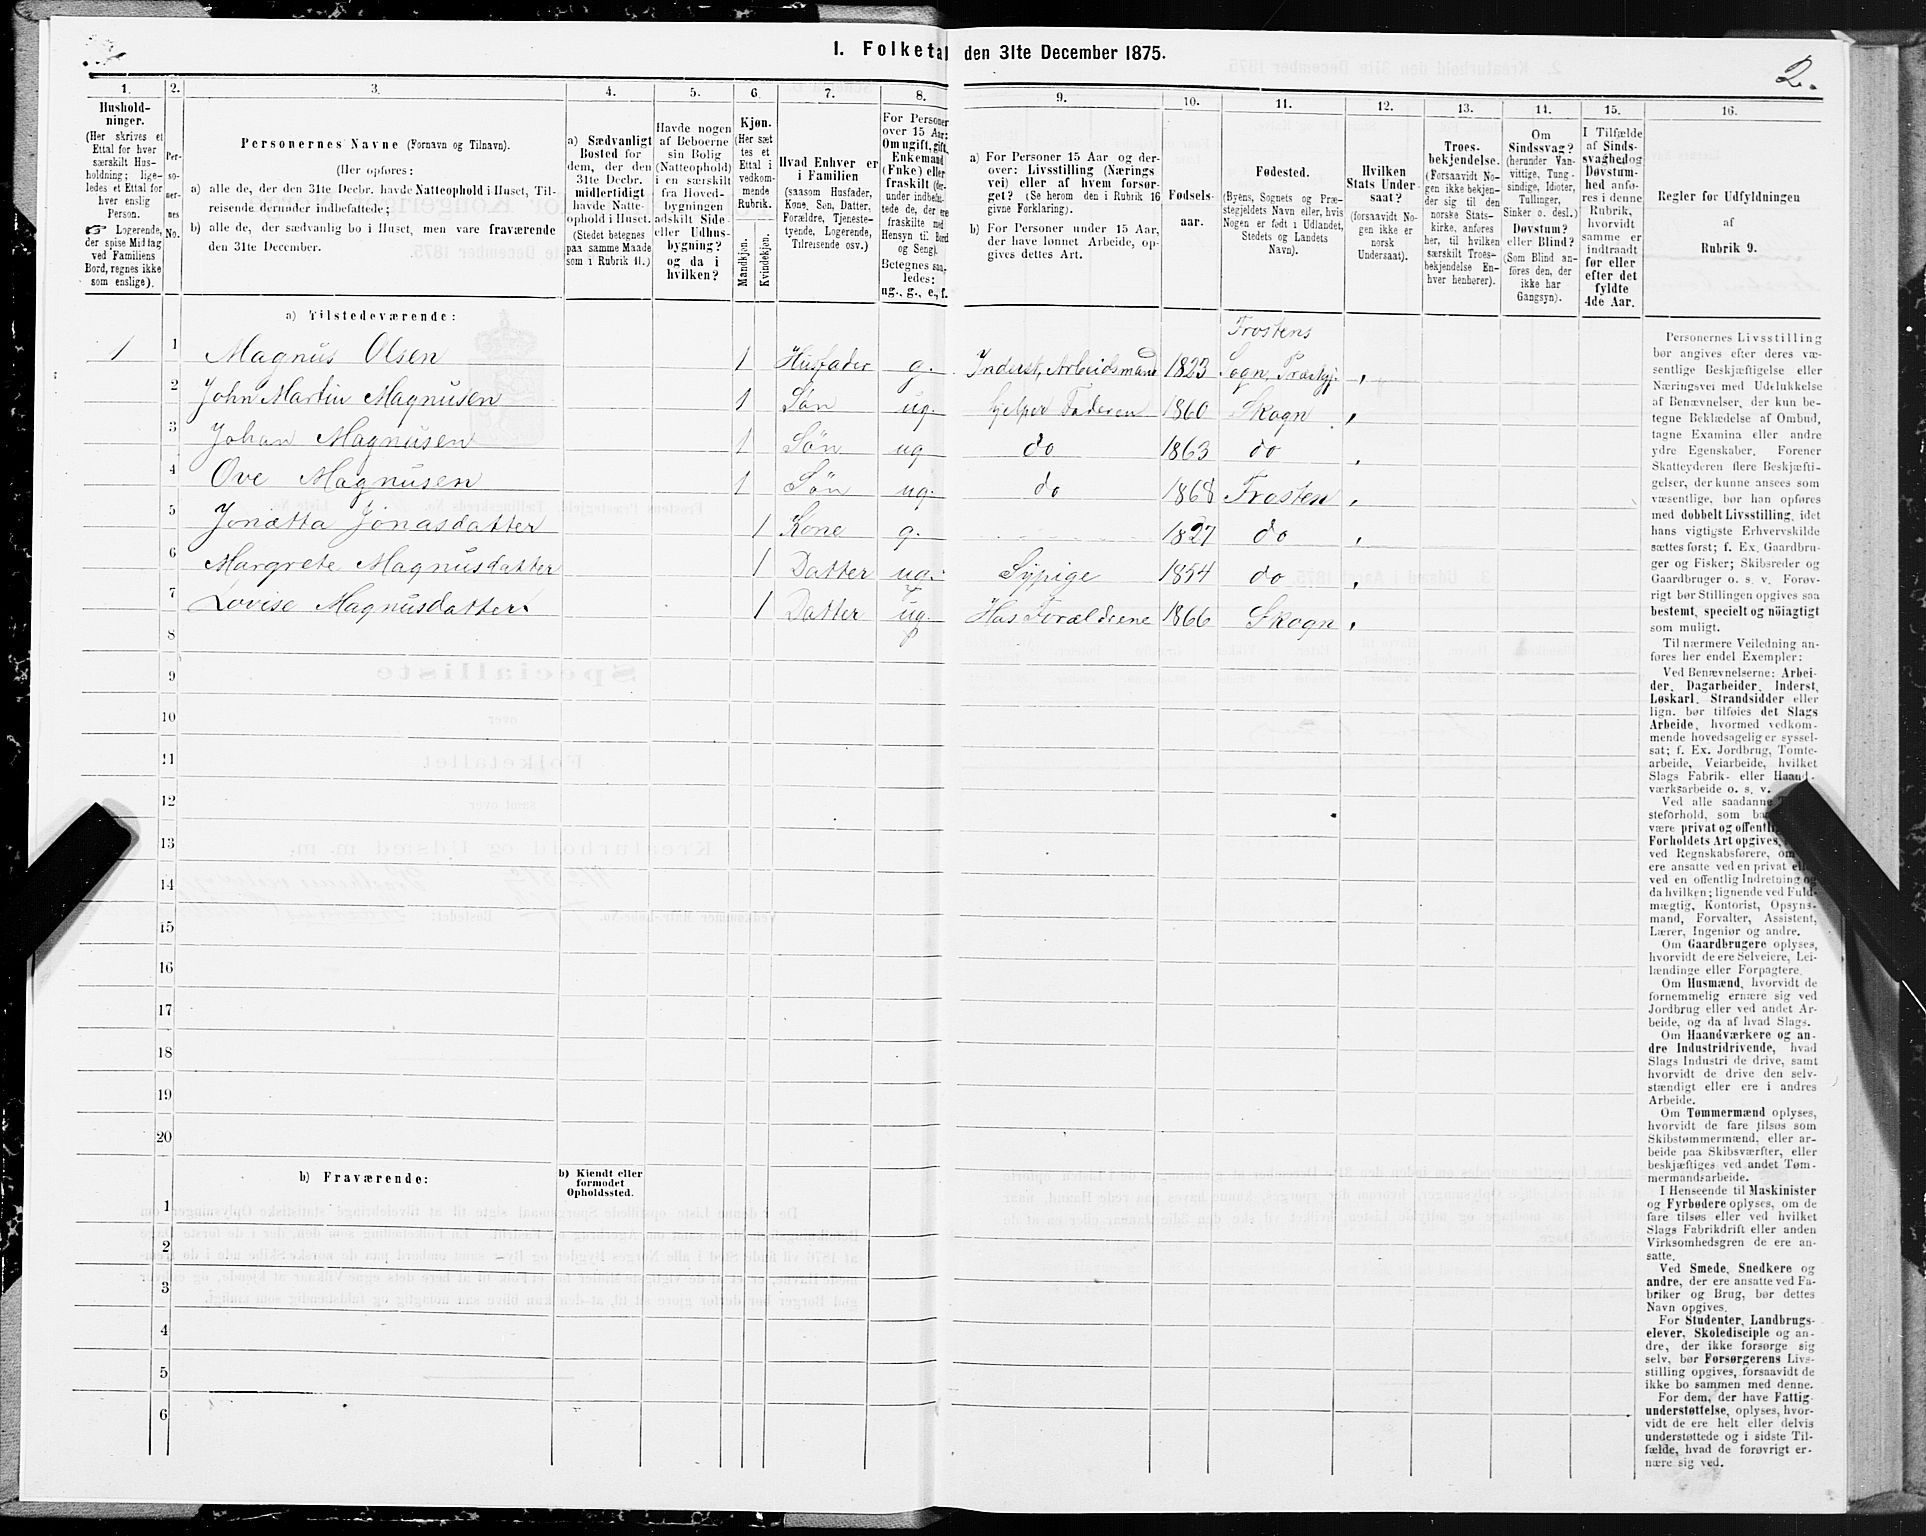 I. Folketal den 31te December 1875.
2.
1.
Hushold-
ninger.
(Her skrives et
Ettal for hver
særskilt Hus-
holdning; lige-
ledes et Ettal for
hver enslig
Person.
☞ Logerende,
der spise Middag
ved Familiens
Bord, regnes ikke
som enslige).
2.
Per-
so-
ner-
nes
No.
3.
Personernes Navne (Fornavn og Tilnavn).
(Her opføres:
a) alle de, der den 31te Decbr. havde Natteophold i Huset, Til-
reisende derunder indbefattede;
b) alle de, der sædvanlig bo i Huset, men vare fraværende
den 31te December.
4.
a) Sædvanligt
Bosted for
dem, der den
31te Decbr.
midlertidigt
havde Natte-
ophold i Huset.
(Stedet betegnes
paa samme Maade
som i Rubrik 11.)
5.
Havde nogen
af Beboerne
sin Bolig
(Natteophold)
i en særskilt
fra Hoved-
bygningen
adskilt Side-
eller Udhus-
bygning?
og da i
hvilken?
6.
Kjøn.
(Her sæt-
tes et
Ettal i
vedkom-
mende
Rubrik.
Mandkjøn.
Kvindekjøn.
7.
Hvad Enhver er
i Familien
(saasom Husfader,
Kone, Søn, Datter,
Forældre, Tjeneste-
tyende, Logerende,
Tilreisende osv.)
8.
For Personer
over 15 Aar:
Om ugift, gift,
Enkemand
(Enke) eller
fraskilt (der-
under indbefat-
tede de, der ere
fraskilte med
Hensyn til Bord
og Seng).
Betegnes saa-
ledes:
ug., g., e., f.
9.
a) For Personer 15 Aar og der-
over: Livsstilling (Nærings-
vei) eller af hvem forsør-
get? (Se herom den i Rubrik 16
givne Forklaring).
b) For Personer under 15 Aar,
der have lønnet Arbeide, op-
gives dettes Art.
10.
Fødsels-
aar.
11.
Fødested.
(Byens, Sognets og Præ-
stegjeldets Navn eller, hvis
Nogen er født i Udlandet,
Stedets og Landets
Navn).
12.
Hvilken
Stats Under-
saat?
(forsaavidt No-
gen ikke er
norsk
Undersaat).
13.
Troes-
bekjendelse.
(Forsaavidt No-
gen ikke bekjen-
der sig til den
norske Stats-
kirke, anføres
her, til hvilken
særskilt Troes-
bekjendelse En-
hver henhører).
14.
Om
Sindssvag?
(herunder Van-
vittige, Tung-
sindige, Idioter,
Tullinger,
Sinker o. desl.)
Døvstum?
eller Blind?
(Som Blind an-
føres den, der
ikke har
Gangsyn).
15.
I Tilfælde
af Sinds-
svaghed og
Døvstum-
hed anfø-
res i denne
Rubrik,
hvorvidt
samme er
indtraadt
før eller
efter det
fyldte
4de Aar.
16.
Regler for Udfyldningen
af
Rubrik 9.
a) Tilstedeværende:
1 1 Magnus Olsen 1 Husfader g. Inderst, Arbeidsmand 1823 Frostens Sogn, Præstgj. ,
2 John Martin Magnusen 1 Søn ug. hjelper Faderen 1860 Skogn ,
3 Johan Magnusen 1 Søn ug do 1863 do ,
4 Ove Magnusen 1 Søn ug. do 1868 Frosten ,
5 Jonetta Jonasdatter 1 Kone g. 1827 do ,
6 Margrete Magnusdatter 1 Datter ug. Sypige 1854 do ,
7 Lovise Magnusdatter 1 Datter ug. Hos Forældrene 1866 Skogn ,
8
9
10
11
12
13
14
15
16
17
18
19
20
b) Fraværende:
b) Kjendt eller
formodet
Opholdssted.
1
2
3
4
5
6
Personernes Livsstilling
bør angives efter deres væ-
sentlige Beskjæftigelse eller
Næringsvei med Udelukkelse
af Benævnelser, der kun be-
tegne Beklædelse af Ombud,
tagne Examina eller andre
ydre Egenskaber. Forener
Skatteyderen flere Beskjæfti-
gelser, der kunne ansees som
væsentlige, bør han opføres
med dobbelt Livsstilling, idet
hans vigtigste Erhvervskilde
sættes først; f. Ex. Gaardbru-
ger og Fisker; Skibsreder og
Gaardbruger o. s. v. Forøv-
rigt bør Stillingen opgives saa
bestemt, specielt og nøiagtigt
som muligt.
Til nærmere Veiledning an-
føres her endel Exempler:
Ved Benævnelserne: Arbei-
der, Dagarbeider, Inderst,
Løskarl, Strandsidder eller
lign. bør tilføies det Slags
Arbeide, hvormed vedkom-
mende hovedsagelig er syssel-
sat; f. Ex. Jordbrug, Tomte-
arbeide, Veiarbeide, hvilket
Slags Fabrik- eller Haand-
værksarbeide o. s. v.
Ved alle saadanne
steforhold, som
være privat og offentlig
Forholdets Art opgives,
ved Regnskabsførere, om
ere ansatte ved en privat
ved en offentlig Indretning og
da hvilken; lignende ved Fuld-
mægtig, Kontorist, Opsyns-
mand, Forvalter, Assistent,
Lærer, Ingeniør og andre.
Om Gaardbrugere oplyses,
hvorvidt de ere Selveiere, Lei-
lændinge eller Forpagtere.
Om Husmænd, hvorvidt de
fornemmelig ernære sig ved
Jordbrug eller ved andet Ar-
beide, og da af hvad Slags.
Om Haandværkere og an-
dre Industridrivende, hvad
Slags Industri de drive, samt
hvorvidt de drive den selv-
stændigt eller ere i andres
Arbeide.
Om Tømmermænd oplyses,
hvorvidt de fare tilsøs som
Skibstømmermænd, eller ar-
beide paa Skibsværfter, eller
beskjæftiges ved andet Tøm-
mermandsarbeide.
I Henseende til Maskinister
og Fyrbødere oplyses, om de
fare tilsøs eller ved hvilket
Slags Fabrikdrift eller anden
Virksomhedsgren de ere an-
satte.
Ved Smede, Snedkere og
andre, der ere ansatte ved Fa-
briker og Brug, bør dettes
Navn opgives.
For Studenter, Landbrugs-
elever, Skoledisciple og an-
dre, der ikke forsørge sig
selv, bør Forsørgerens Livs-
stilling opgives, forsaavidt de
ikke bo sammen med denne.
For dem, der have Fattig-
understøttelse, oplyses, hvor-
vidt de ere helt eller delvis
understøttede og i sidste Til-
fælde, hvad de forøvrigt er-
nære sig ved.